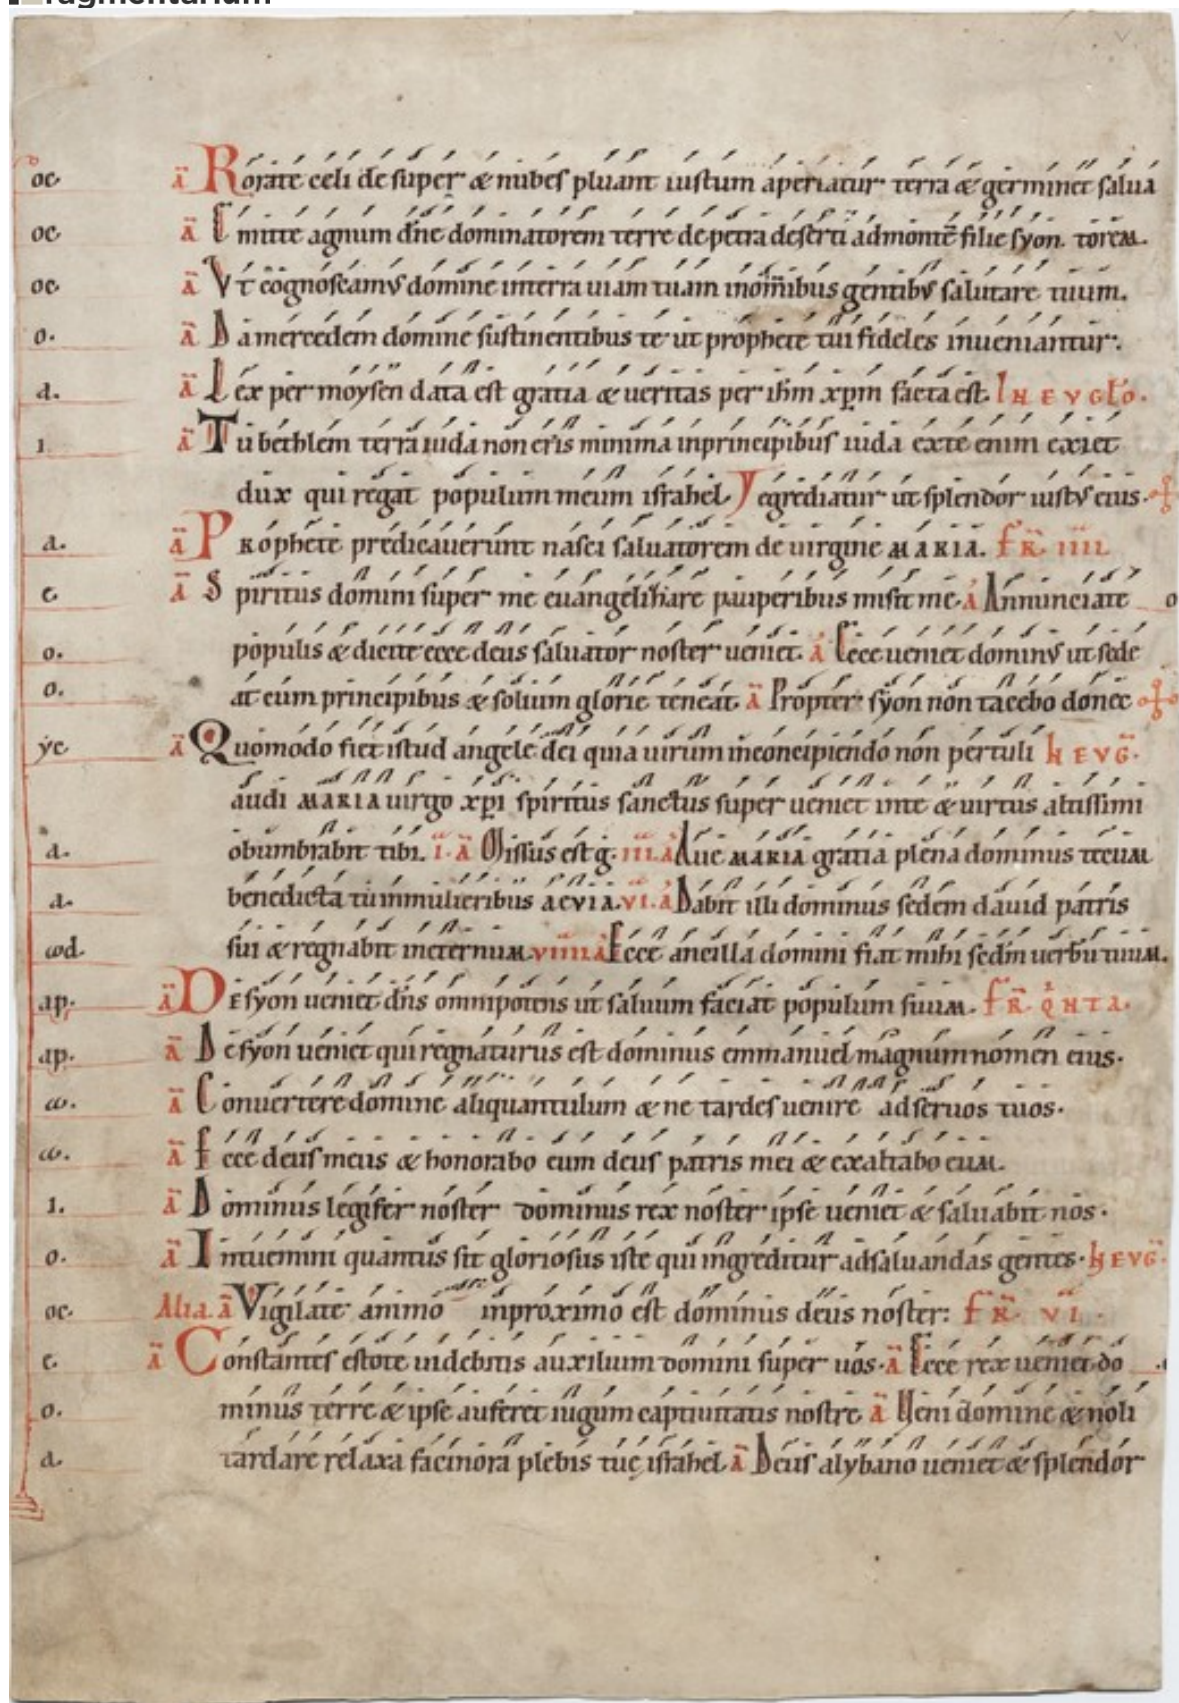 fragmentarium
oc ā Rorate celi de super & nubes pluant iustum aperiatur terra & germinet salua
oc ā Emitte agnum dn̄e dominatorem terre de petra deserti ad montē filie syon. torem.
oc ā Vt cognoscamus domine interra uiam tuam inom̄ibus gentibus salutare tuum.
o. ā Da mercedem domine sustinentibus te ut prophete tui fideles inueniantur.
a. ā Lex per moysen data est gratia & ueritas per ih̄m xp̄m facta est. IN EVGLO.
ı ā Tu bethlem terra iuda non eris minima inprincipibus iuda exte enim exiet
dux qui regat populum meum israhel. Y egrediatur ut splendor iustus eius.
a. ā Prophete predicauerunt nasci saluatorem de uirgine MARIA. FR̄. IIII.
e ā Spiritus domini super me euangelizare pauperibus misit me. ā Annunciate o
o. populis & dicite ecce deus saluator noster ueniet. ā Ecce ueniet dominus ut sede
o. at cum principibus & solium glorie teneat. ā Propter syon non tacebo donec
ẏc ā Quomodo fiet istud angele dei quia uirum inconcipiendo non pertuli IN EVḠ.
audi MARIA uirgo xp̄i spiritus sanctus super ueniet inte & uirtus altissimi
a. obumbrabit tibi. i. ā Missus est g. iii. ā Aue MARIA gratia plena dominus tecum
a. benedicta tu inmulieribus aevia. vi. ā Dabit illi dominus sedem dauid patris
wd. sui & regnabit ineternum. viiii ā Ecce ancilla domini fiat mihi sedm̄ uerbū tuum.
ap. ā De syon ueniet dn̄s omnipotens ut saluum faciat populum suum. FR̄. QͥNTA.
ap. ā De syon ueniet qui regnaturus est dominus emmanuel magnum nomen eius.
w. ā Conuertere domine aliquantulum & ne tardes uenire ad seruos tuos.
w. ā Ecce deus meus & honorabo eum deus patris mei & exaltabo eum.
ı. ā Dominus legifer noster dominus rex noster ipse ueniet & saluabit nos.
o. ā Intuemini quantus sit gloriosus iste qui ingreditur adsaluandas gentes. IN EVḠ.
oc Alia. ā Vigilate animo inproximo est dominus deus noster: FR̄. VI.
e. ā Constantes estote uidebitis auxilium domini super uos. ā Ecce rex ueniet do
o. minus terre & ipse auferet iugum captiuitatis nostre ā Veni domine & noli
a. tardare relaxa facinora plebis tuę israhel. ā Deus alybano ueniet & splendor